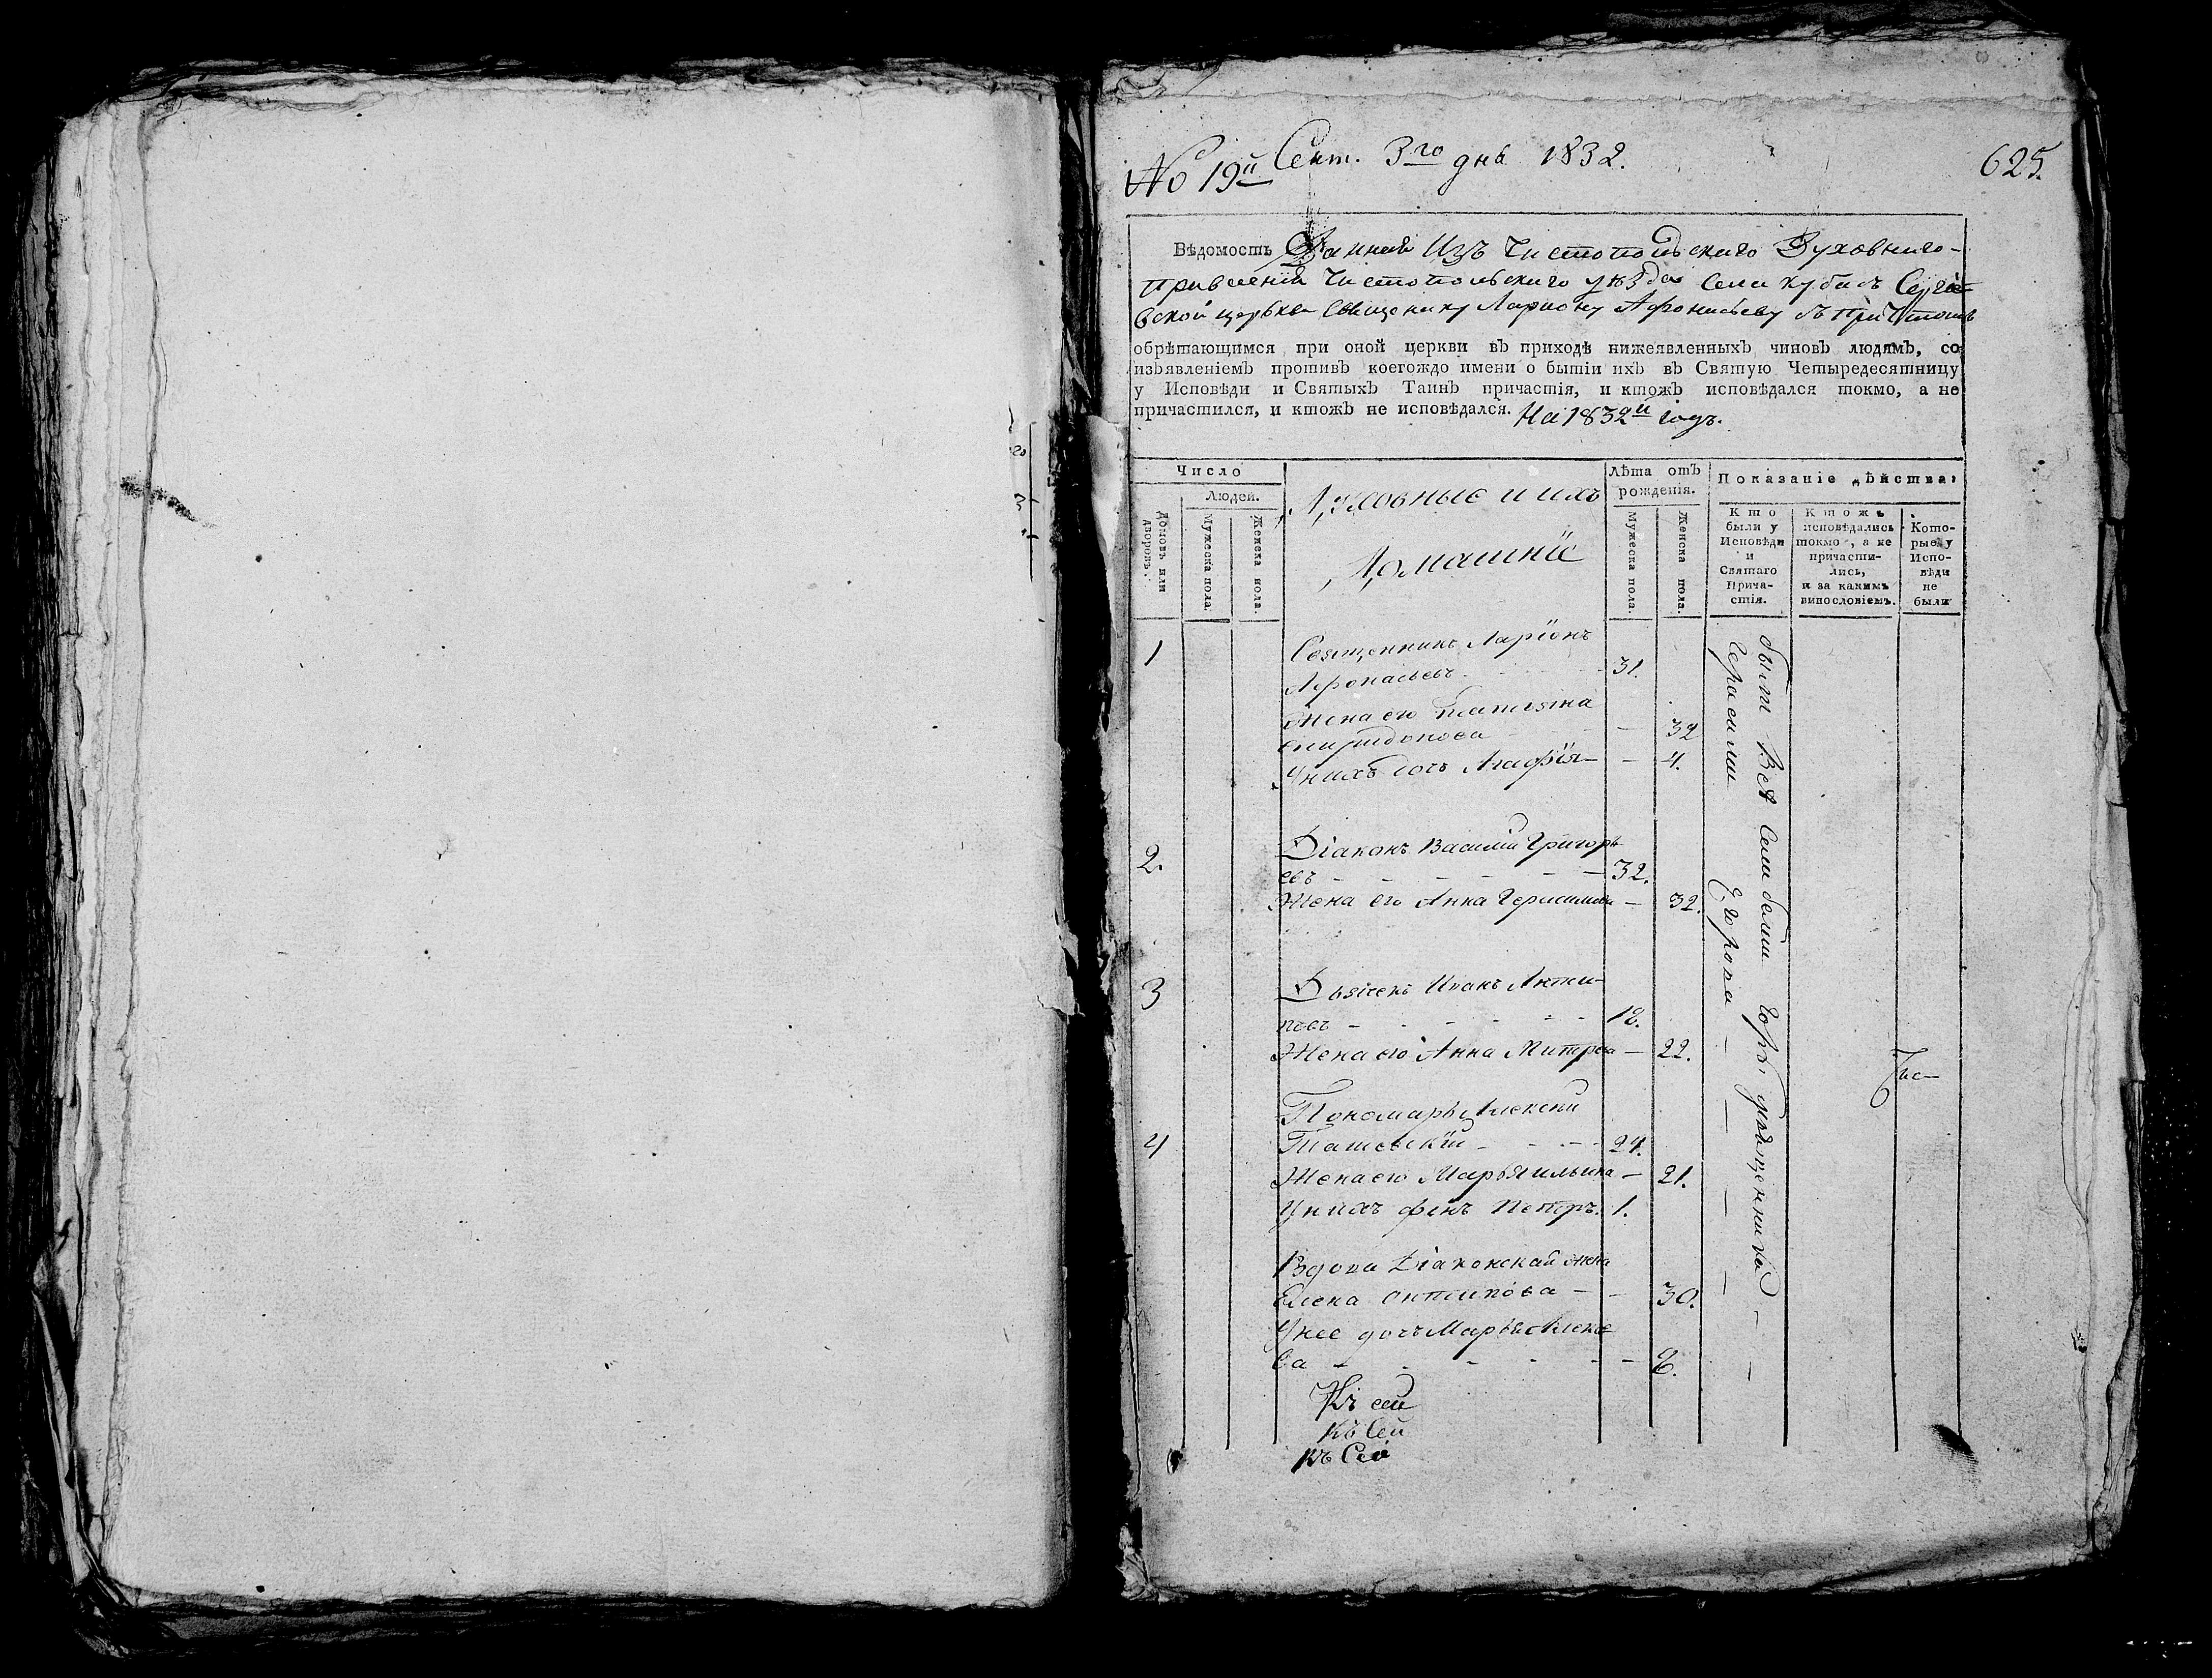 No 19й Сент. 3го дня 1832.
625.
Вѣдомость Данная Изъ Чистопольскаго Духовнаго
правления Чистопольскаго уѣзда Села Кубасъ Сергие
вской церькви Священику Лариону Афонасьеву съ причтомъ
обрѣтающимся при оной церкви въ приходѣ нижеявленныхъ чиновъ людямъ, со
изъявленіемъ противъ коегождо имени о бытіи ихъ въ Святую Четыредесятницу
у Исповѣди и Святыхъ Таинъ причастія, и ктожъ исповѣдался токмо, а не
причастился, и ктожъ не исповѣдался. На 1832й годъ.
Число
Людей.
Домовъ или дворовъ.
Мужеска пола.
Женска пола.
Духовные и ихъ
Домашнїе
Лѣта отъ
рожденія.
Мужеска пола.
Женска пола.
Показаніе дѣйства:
Кто
были у
Исповѣди
и
Святаго
Прича-
стія.
Ктожъ
исповѣдались
токмо, а не
причасти-
лись,
и за какимъ
винословіемъ.
Кото-
рые у
Испо-
вѣди
не
были
1
Священникъ Ларїонъ
Афонасьевъ - 31.
Жена его
Спиридонова - 32
У нихъ дочь Агафїя - 4.
2.
Дїаконъ Василий Григорь
евъ - 32.
Жена его Анна Герасимова - 32.
3
Дьячекъ Иванъ Анти-
повъ - 18.
Жена его Анна Митрева - 22.
4
Пономарь Алексий
- 24.
Жена его Марья Ильина - 21.
У нихъ сынъ Петръ. 1.
Вдова Дїаконская жена
Елена Онтипова - 30.
У нее дочь Марья Алексе
ва - 8.
Къ сей
Къ Сей
Къ Сей
были Всѣ Села
Герасима Егорова